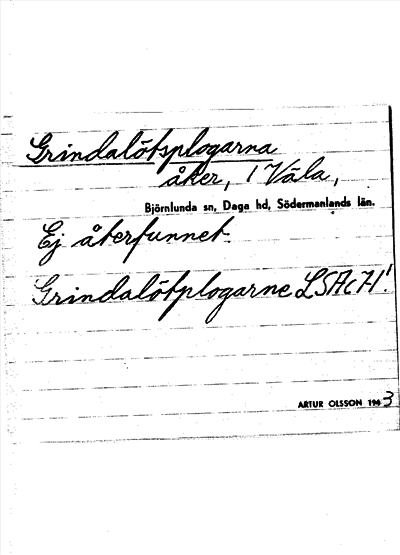 Grindalötsplogarna
åker, 1 Väla,
Björnlunda sn, Daga hd, Södermanlands län.
Ej återfunnet.
Grindalötplogarne LSAcH!
ARTUR OLSSON 1943